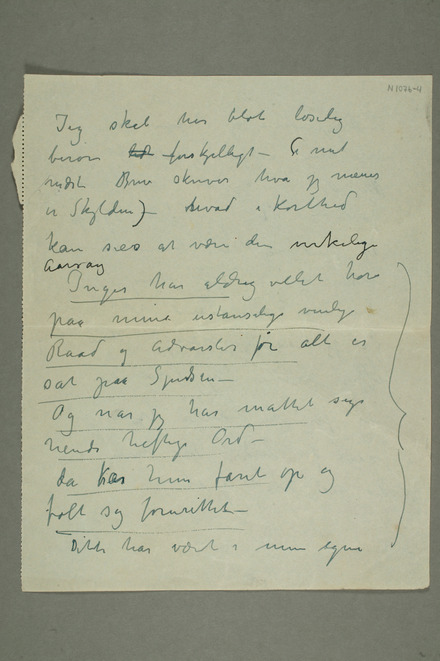 N 1026-4
Jeg skal her blot løselig
berøre forskjelligt – (i mit
næste Brev skriver hva jeg mener
er Skylden) – hvad i Korthed
kan sies at være den virkelige
Aarsag
Inger har aldrig villet høre
paa mine ustanselige venlige
Raad og Advarsler før alt er
sat paa Spidsen –
Og naar jeg har maattet sige
hende heftige Ord –
da har hun faret op og
følt sig forurettet –
Dette har vært i min egen